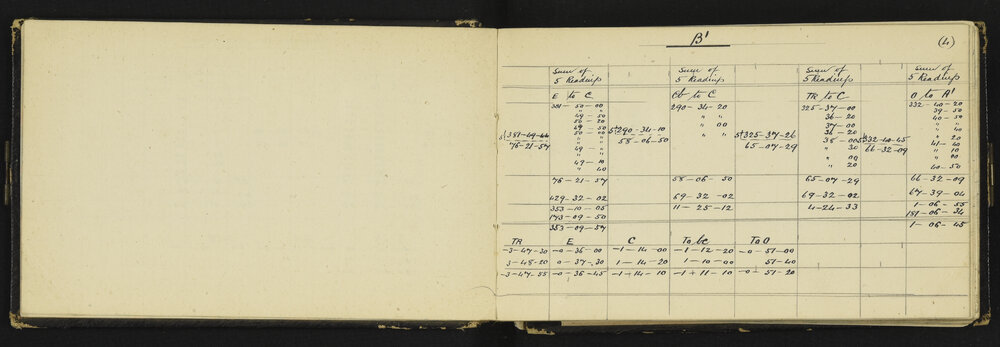 B' (4)
Sum of Sum of Sum of Sum of
5 Readings 5 Readings 5 Readings 5 Readings
E to C Cb to C TR to C O to A'
381-50-00 290-34-20 325-37-00 332-40-20
" " " " 36-20 39-50
49-50 " 00 37-00 40-50
50-20 " " 36-20 " "
49-50 38-00 " 40
50-00 " 30 " 20
" " " 00 41-40
49- " " 20 " 10
" " " 00
49-10 40-50
" 40
5)381-49-44 5)290-34-10 5)325-37-26 5)332-40-45
76-21-57 58-06-50 65-07-29 66-32-09
76-21-57 58-06-50 65-07-29 66-32-09
429-32-02 69-32-02 69-32-02 67-39-04
353-10-05 11-25-12 4-24-33 1-06-55
173-09-50 181-06-34
353-09-57 1-06-45
TR E C To bc To O
-3-47-30 -0-36-00 -1-14-00 -1-12-20 -0-51-00
3-48-20 0-37-30 1-14-20 1-10-00 51-40
-3-47-55 -0-36-45 -1-14-10 -1-11-10 -0-51-20